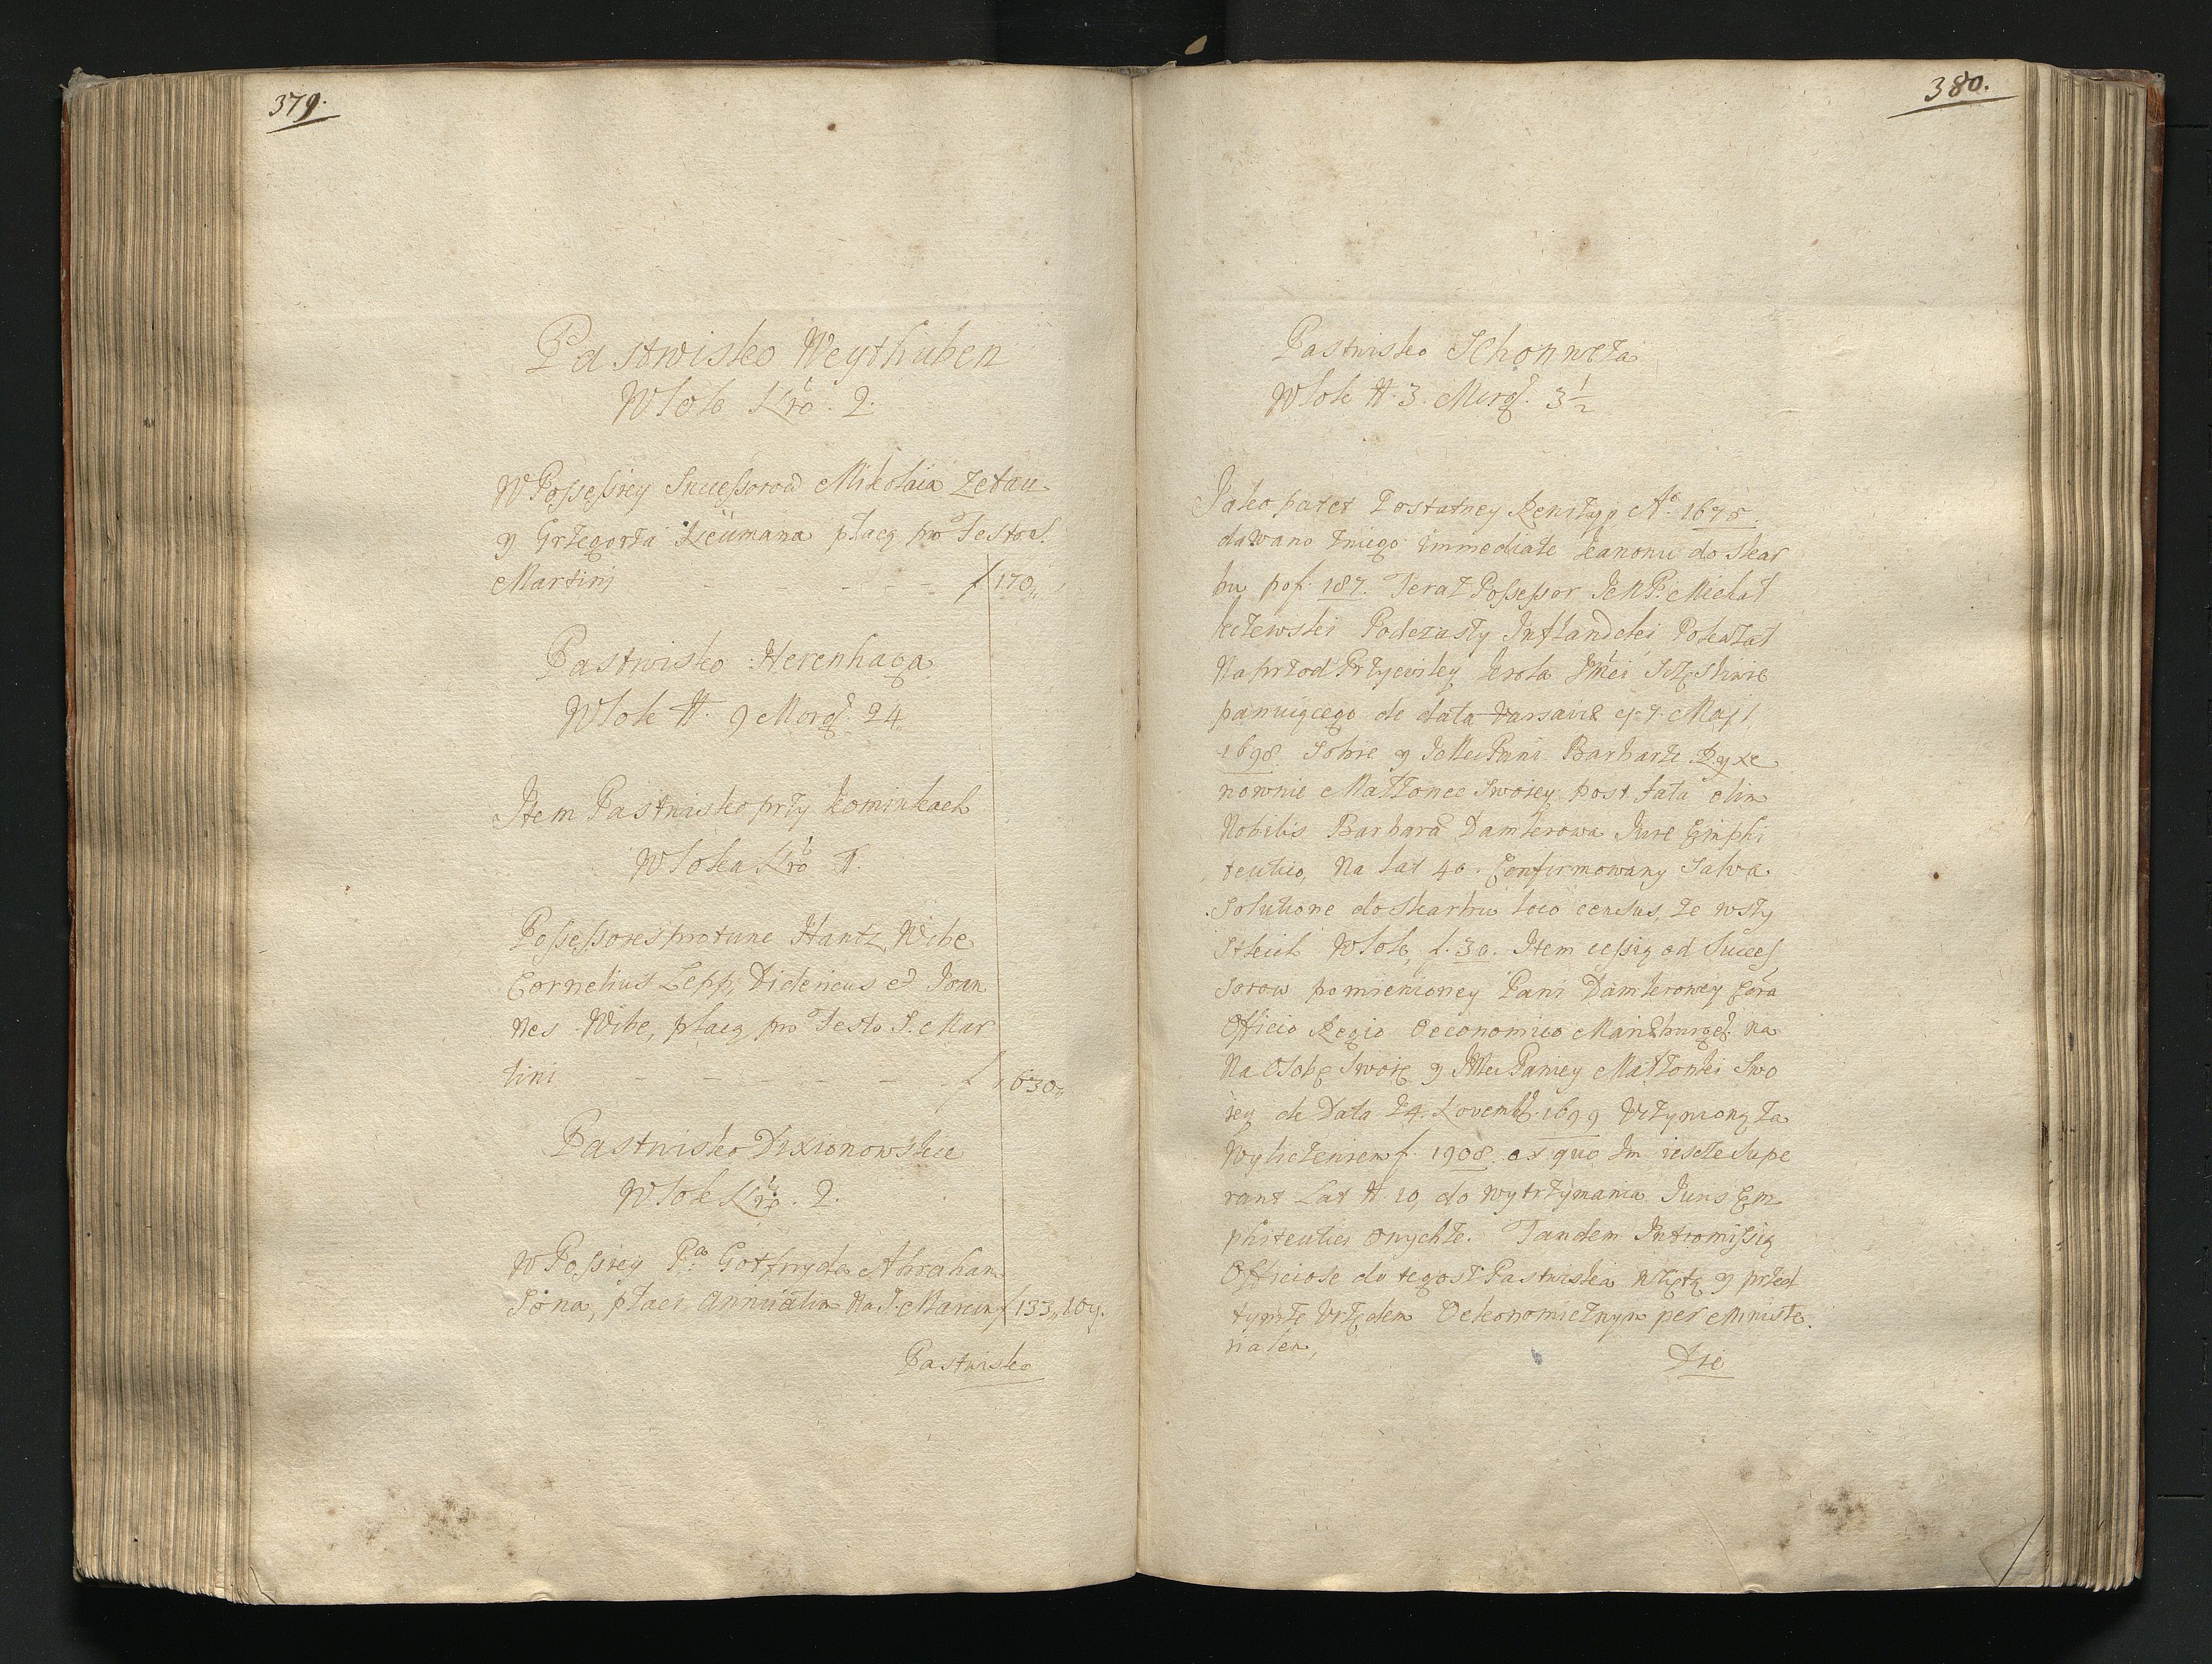 379.
Pastwisko Weythuben
Wlok Nrō. 2.
W Possessiey Sucessorow Mikolaia Zetau
y Grzegorza Neümana płacą pro Festo S.
Martini - - - - f 170,,
Pastwisko Herenhaga
Wlok N. 9 Morg. 24
Item Pastwisko przy kominkach
Wloka Nrō
Possessores protunc Hantz Wibe
Cornelius Zepp, Didericus et Ioan
nes Wibe, płacą pro Festo S. Mar
tini - - - - - - f 630,,
Pastwisko Dixionowskie
Wlok Nrō. 2.
W Possiey Pa. Gotfryda Abraham
Sona, płaci Annuatim Na S. Marcin f 133,, 10 g.
Pastwisko
380.
Pastwisko Schonweza
Wlok N. 3. Morg. 3 1/2
Jako patet Postatney Rewizyi Ao. 1675.
dawano zniego immediate kanonu do Skar
bu po f. 187. Teraz Possessor JMP. Michał
kczewski Podczaszy Inflandcki Pokazał
Naprzod Przywiley krola JMci Szczęśliwie
panuiącego de data Varsaviæ 7 Maji
1698. Sobie y JeMci Pani Barbarze Pyxe
nownie Małzonce Swoiey post fata olim
Nobilis Barbara Damlerowa Iure Emphi
teutico, Na lat 40. Confirmowany Salva
Solutione do Skarbu loco census, ze wszy
stkich Wlok, f. 30. Item cessią od Succes
sorow pomienioney Pani Damlerowey Cora
Officio Regio Oeconomico Mariæburg. na
Na Osobę Swoię y JMci Paniey Małzonki Swo
iey de Data 24 Novembr. 1699 Uczynioną za
Wyliczeniem f. 1908. ex quo Im ieszcze Supe
rant Lat N. 10, do wytrzymania Iuris Em
phiteutici onychze. Tandem Intromissią
Officiose do tegosz Pastwiska Wziętą y przed
tymze Urzędem Oekonomicznym per Ministe
rialem,
Die